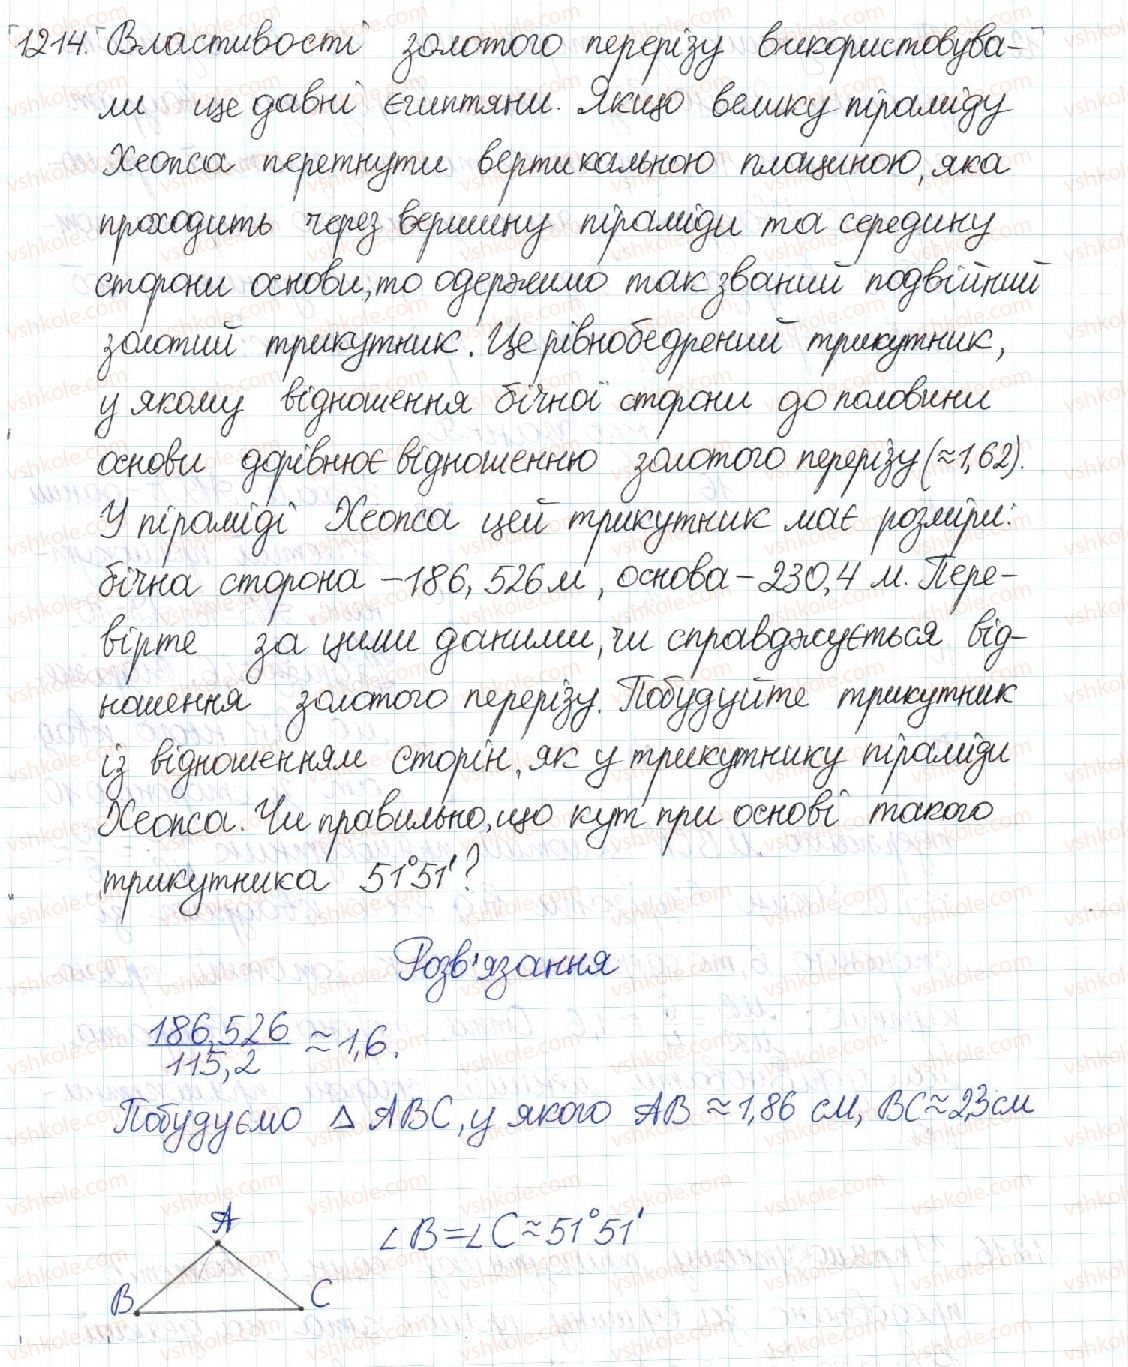 1214. Властивості золотого перерізу використовува-
ли ще давні єгиптяни. Якщо велику піраміду
Хеопса перетнути вертикальною площиною, яка
проходить через вершину піраміди та середину
сторони основи, то одержимо так званий подвійний
золотий трикутник. Це рівнобедрений трикутник,
у якому відношення бічної сторони до половини
основи дорівнює відношенню золотого перерізу (≈1,62).
У піраміді Хеопса цей трикутник має розміри:
бічна сторона – 186,526 м, основа – 230,4 м. Пере-
вірте за цими даними, чи справджується від-
ношення золотого перерізу. Побудуйте трикутник
із відношенням сторін, як у трикутнику піраміди
Хеопса. Чи правильно, що кут при основі такого
трикутника 51°51'?
Розв'язання
186,526
115,2
≈1,6.
Побудуємо △ABC, у якого AB ≈ 1,86 см, BC ≈ 2,3 см
A
∠B=∠C≈51°51'
B
C